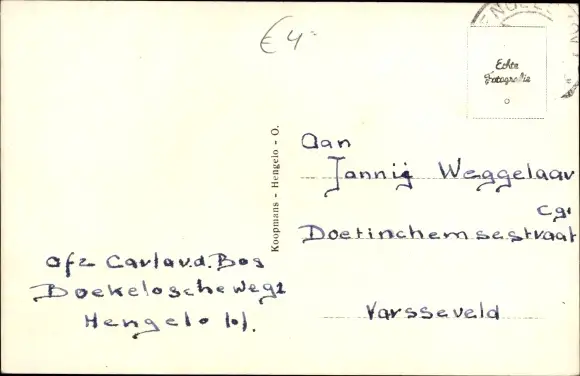 € 4-
HENGELO
Echte
Fotografie
Koopmans - Hengelo - O.
Aan
Jannij Weggelaar
Cg.
Doetinchemsestraat
Varsseveld
afz Carla v.d. Bos
Boekeloscheweg 2
Hengelo